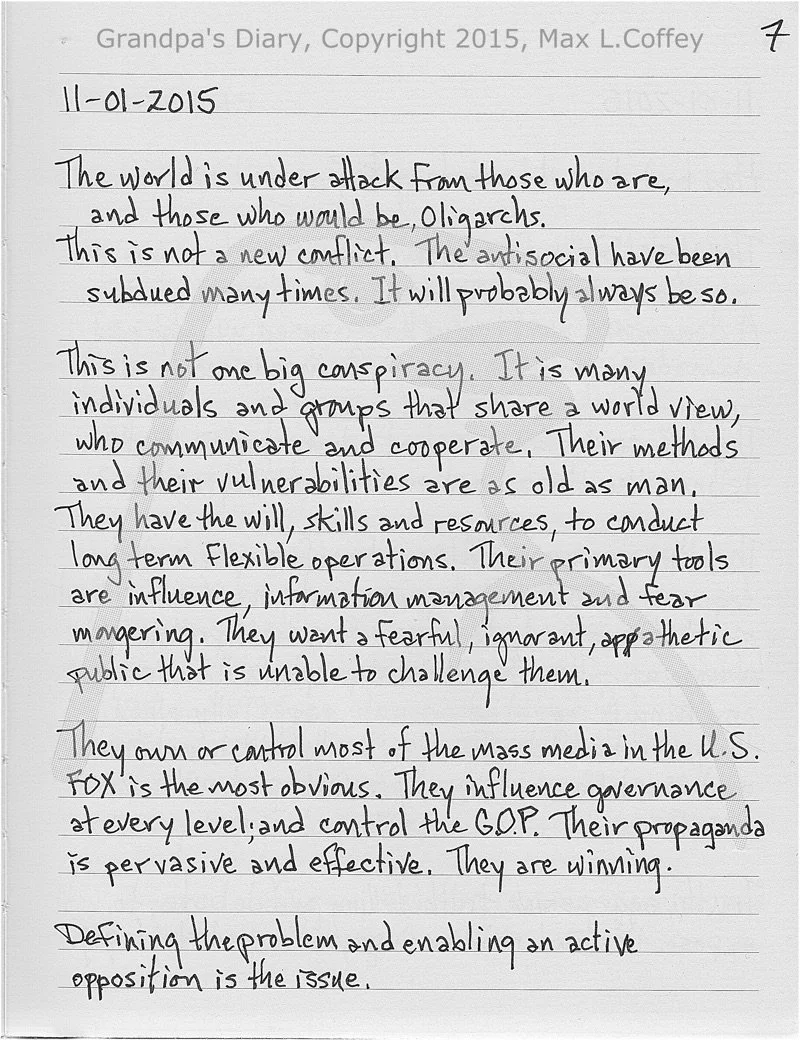 Grandpa's Diary, Copyright 2015, Max L.Coffey
7
11-01-2015
The world is under attack from those who are,
and those who would be, Oligarchs.
This is not a new conflict. The antisocial have been
subdued many times. It will probably always be so.
This is not one big conspiracy. It is many
individuals and groups that share a world view,
who communicate and cooperate. Their methods
and their vulnerabilities are as old as man.
They have the will, skills and resources, to conduct
long term flexible operations. Their primary tools
are influence, information management and fear
mongering. They want a fearful, ignorant, appathetic
public that is unable to challenge them.
They own or control most of the mass media in the U.S.
FOX is the most obvious. They influence governance
at every level; and control the G.O.P. Their propaganda
is pervasive and effective. They are winning.
Defining the problem and enabling an active
opposition is the issue.